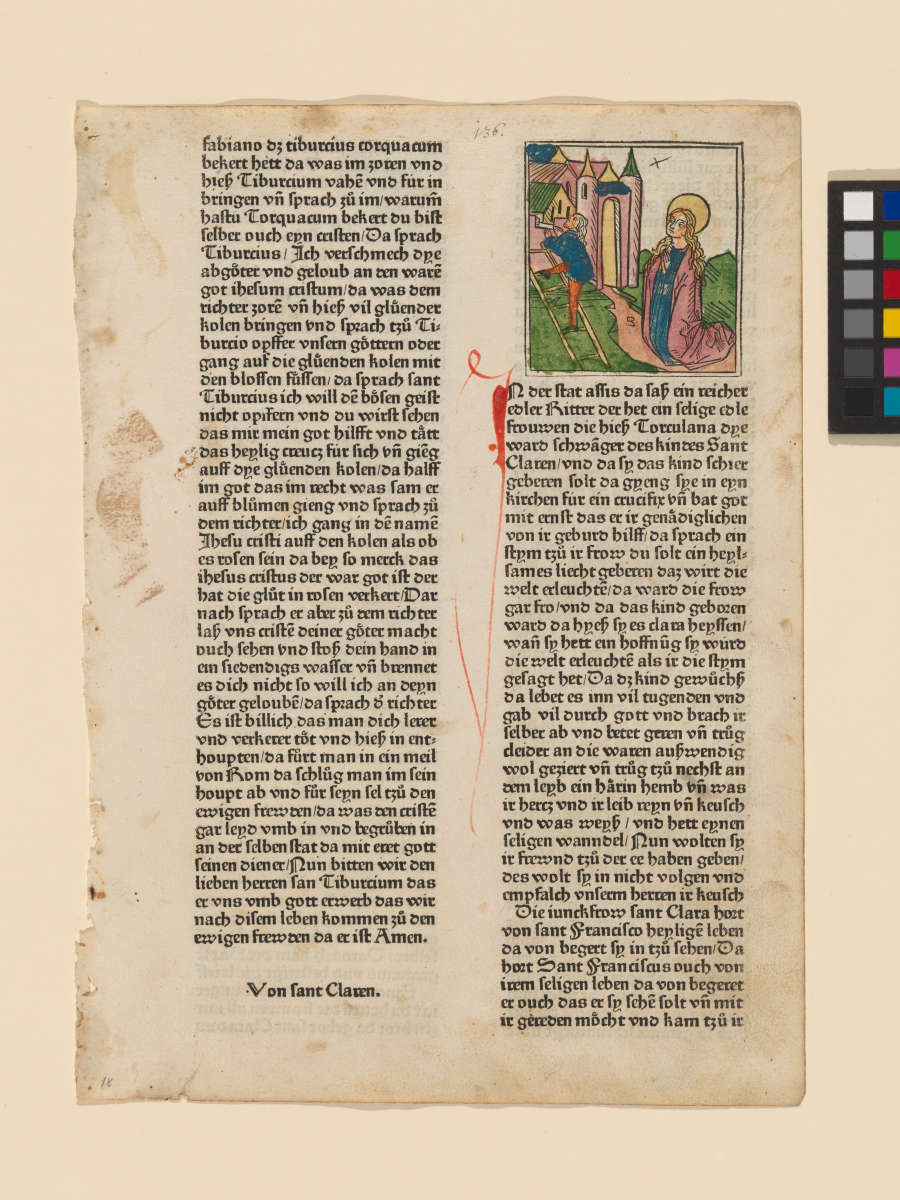 136.
fabiano dz tiburcius torquacum
bekert hett da was im zoren vnd
hieß Tiburcium vahē vnd für in
bringen vñ sprach zů im/warum̄
hastu Torquacum bekert du bist
selber ouch eyn cristen/Da sprach
Tiburcius/ Ich verschmech dye
abgöter vnd geloub an den warē
got ihesum cristum/da was dem
richter zorē vñ hieß vil glůender
kolen bringen vnd sprach tzů Ti⸗
burcio opffer vnsern göttern oder
gang auf die glůenden kolen mit
den blossen fůssen/da sprach sant
Tiburcius ich will dē bösen geist
nicht opffern vnd du wirst sehen
das mir mein got hilfft vnd tått
das heylig creucz für sich vñ giēg
auff dye glůenden kolen/da halff
im got das im recht was sam er
auff blůmen gieng vnd sprach zů
dem richter/ich gang in dē namē
Jhesu cristi auff den kolen als ob
es rosen sein da bey so merck das
ihesus cristus der war got ist der
hat die glůt in rosen verkert/Dar
nach sprach er aber zů dem richter
laß vns cristē deiner göter macht
ouch sehen vnd stoß dein hand in
ein siedendigs wasser vñ brennet
es dich nicht so will ich an deyn
göter geloubē/da sprach d̕ richter
Es ist billich das man dich lerer
vnd verkerer töt vnd hieß in ent⸗
houpten/da fůrt man in ein meil
von Rom da schlůg man im sein
houpt ab vnd fůr seyn sel tzů den
ewigen frewden/da was den cristē
gar leyd vmb in vnd begrůben in
an der selben stat da mit eret gott
seinen diener/Nun bitten wir den
lieben herren san Tiburcium das
er vns vmb gott erwerb das wir
nach disem leben kommen zů den
ewigen frewden da er ist Amen.
Von sant Claren.
18
IN der stat assis da saß ein reicher
edler Ritter der het ein selige edle
frouwen die hieß Torculana dye
ward schwåger des kindes Sant
Claren/vnd da sy das kind schier
geberen solt da gyeng sye in eyn
kirchen für ein crucifix vñ bat got
mit ernst das er ir genådiglichen
von ir geburd hilff/da sprach ein
stym tzů ir frow du solt ein heyl⸗
sames liecht geberen daz wirt die
welt erleuchtē/da ward die frow
gar fro/vnd da das kind geboren
ward da hyeß sy es clara heyssen/
wañ sy hett ein hoffnūg sy wurd
die welt erleuchtē als ir die stym
gesagt het/Da dz kind gewůchß
da lebet es inn vil tugenden vnd
gab vil durch gott vnd brach ir
selber ab vnd betet geren vñ trůg
cleider an die waren außwendig
wol geziert vñ trůg tzů nechst an
dem leyb ein hårin hemb vñ was
ir hercz vnd ir leib reyn vñ keusch
vnd was weyß / vnd hett eynen
seligen wanndel/Nun wolten sy
ir frewnd tzů der ee haben geben/
des wolt sy in nicht volgen vnd
empfalch vnserm herren ir keusch
Die iunckfrow sant Clara hort
von sant Francisco heyligē leben
da von begert sy in tzů sehen/Da
hort Sant Franciscus ouch von
irem seligen leben da von begeret
er ouch das er sy sehē solt vñ mit
ir gereden möcht vnd kam tzů ir